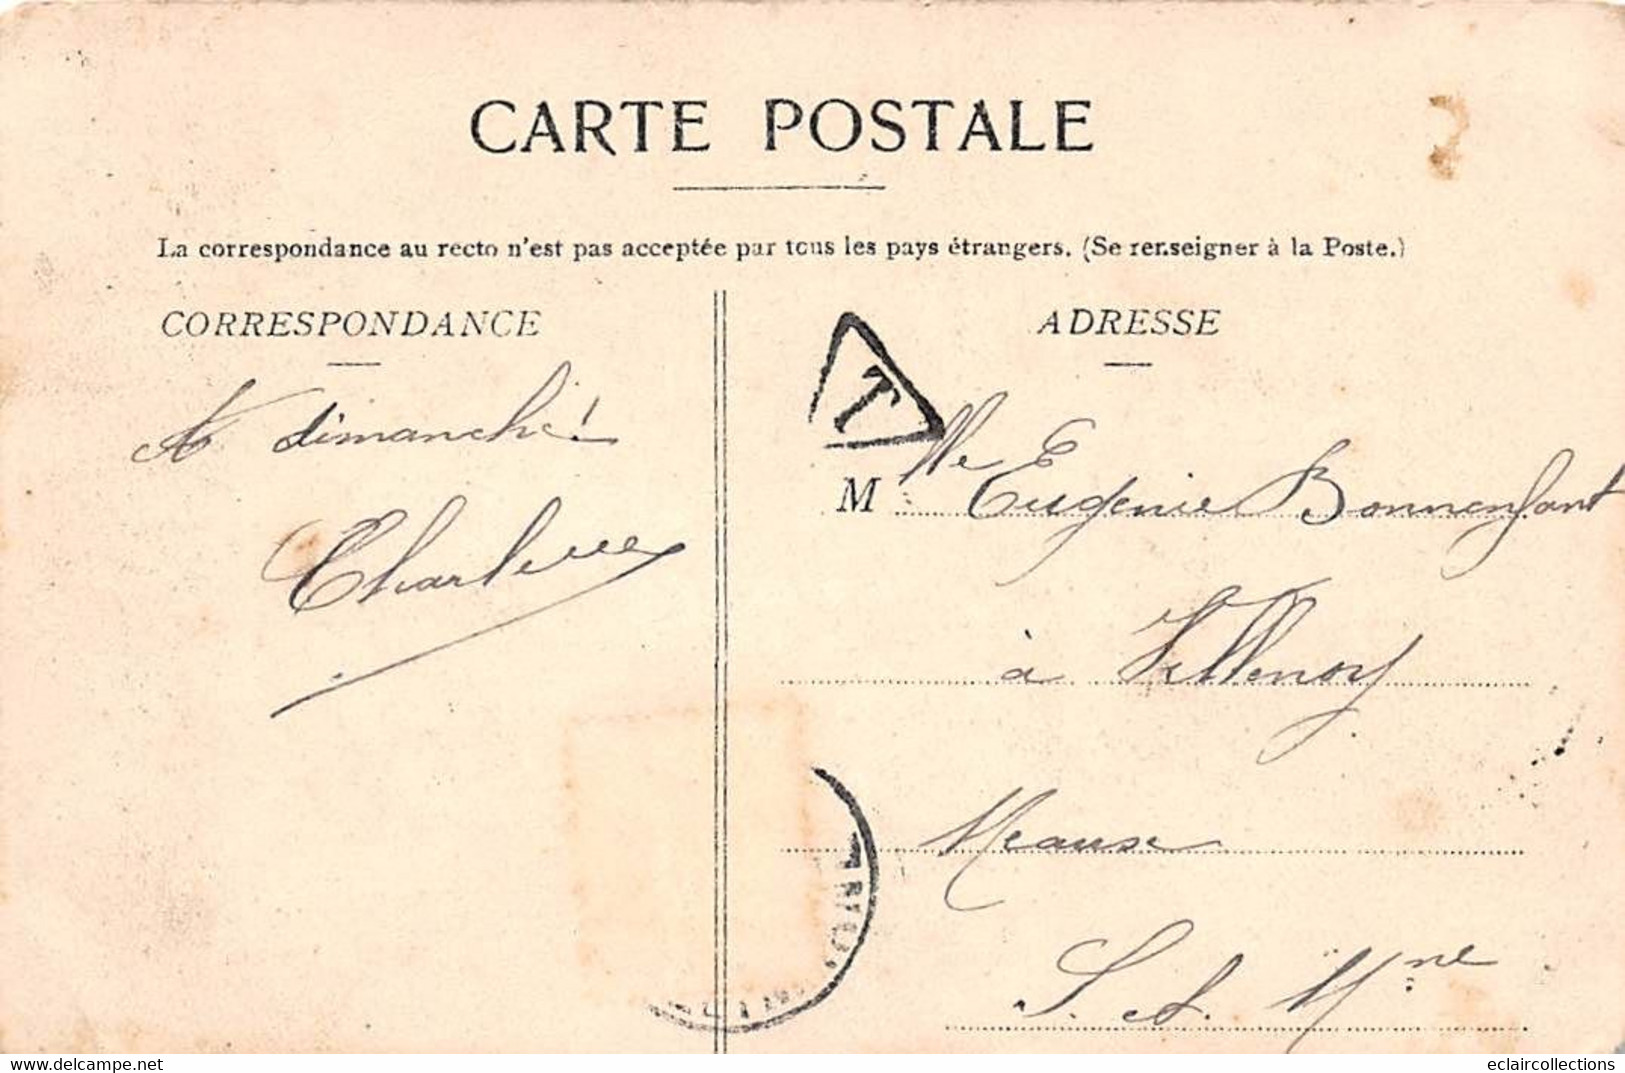 CARTE POSTALE
La correspondance au recto n'est pas acceptée par tous les pays étrangers. (Se renseigner à la Poste.)
CORRESPONDANCE
A dimanche!
ADRESSE
T
M lle Eugénie Bonnenfant
à Villenoy
Meaux
S. et Mne
eclaircollections